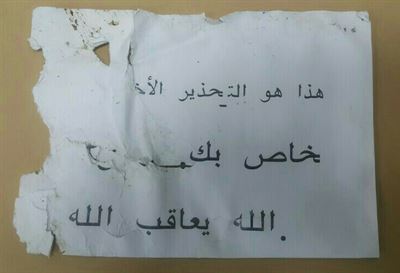 هذا هو التحذير الأخ
خاص بك
الله يعاقب الله.